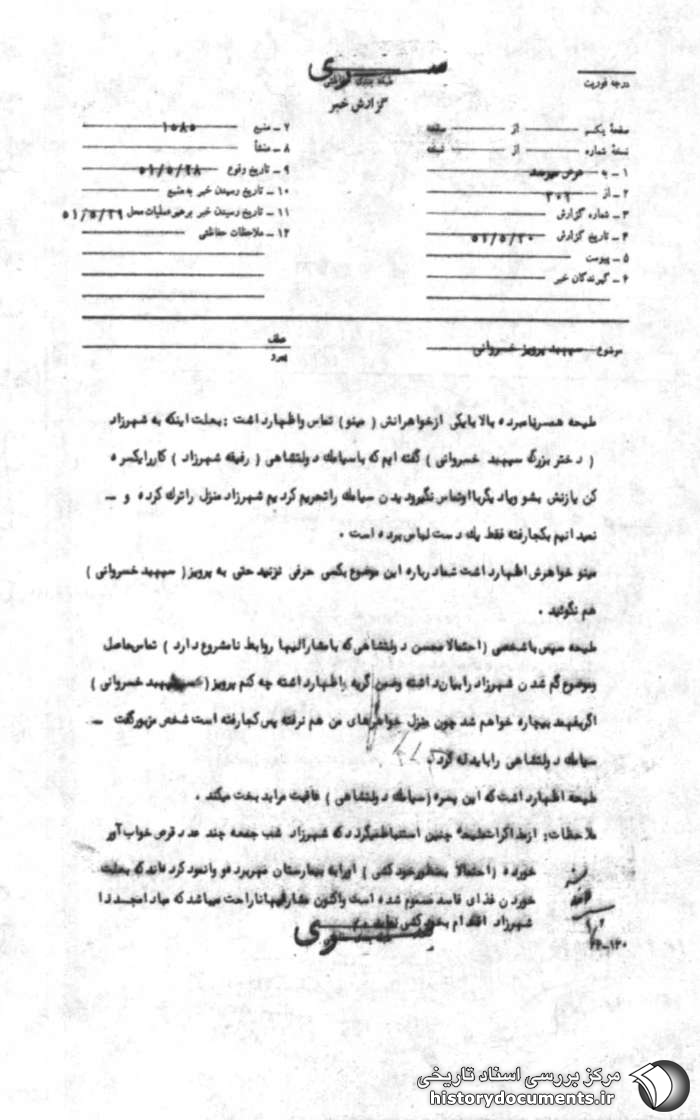 سری
درجه فوریت
گزارش خبر
صفحهٔ یکم از صفحه
نسخهٔ شماره از نسخه
۱ ـ به
۲ ـ از ۳۰۲
۳ ـ شماره گزارش
۴ ـ تاریخ گزارش ۵۱/۵/۳۰
۵ ـ پیوست
۶ ـ گیرندگان خبر
۷ ـ منبع ۱۵۸۵
۸ ـ منشأ
۹ ـ تاریخ وقوع ۵۱/۵/۲۸
۱۰ ـ تاریخ رسیدن خبر به منبع
۱۱ ـ تاریخ رسیدن خبر برهبر عملیات محل ۵۱/۵/۲۹
۱۲ ـ ملاحظات حفاظتی
موضوع سپهبد پرویز خسروانی
عطف
پیرو
طیحه همسر نامبرده بالا با یکی از خواهرانش ( مینو ) تماس و اظهار داشت : بعلت اینکه به شهرزاد
( دختر بزرگ سپهبد خسروانی ) گفته ایم که با سیامک دولتشاهی ( رفیقه شهرزاد ) کار را یکسره
کن یا زنش بشو و یا دیگر با او تماس نگیر و دیدن سیامک را تحریم کردیم شهرزاد منزل را ترک کرده و ـ
نمیدانیم بکجا رفته فقط یک دست لباس برده است .
مینو خواهرش اظهار داشت شما درباره این موضوع بکسی حرفی نزنید حتی به پرویز ( سپهبد خسروانی )
هم نگوئید .
طیحه سپس با شخصی ( احتمالا محسن دولتشاهی که با مشارالیها روابط نامشروع دارد ) تماس حاصل
و موضوع گم شدن شهرزاد را بیان داشته و ضمن گریه اظهار داشته چه کنم پرویز ( سپهبد خسروانی )
اگر بفهمد بیچاره خواهم شد چون منزل خواهرهای من هم نرفته پس کجا رفته است شخص مزبور گفت ـ
سیامک دولتشاهی را باید له کرد .
طیحه اظهار داشت که این پسره ( سیامک دولتشاهی ) عاقبت مرا بدبخت میکند .
ملاحظات : از مذاکرات طیحه چنین استنباط میگردد که شهرزاد شب جمعه چند عدد قرص خواب آور
خورده ( احتمالا بمنظور خودکشی ) او را به بیمارستان مهر برده و وانمود کرده اند که بعلت
خوردن غذای فاسد مسموم شده است و اکنون مشارالیها ناراحت میباشد که مبادا مجددا
شهرزاد اقدام بخودکشی نماید
۴۴-۱۲۰
سری
مرکز بررسی اسناد تاریخی
historydocuments.ir